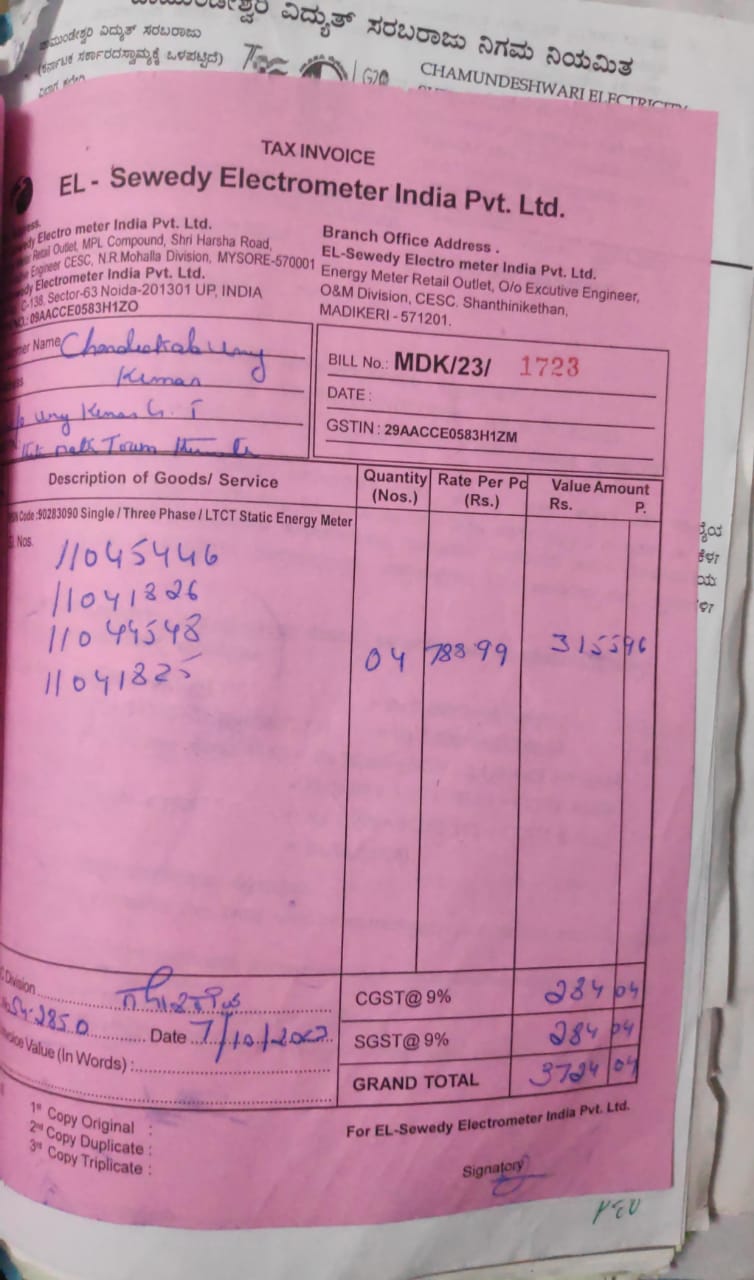 ಚಾಮುಂಡೇಶ್ವರಿ ವಿದ್ಯುತ್ ಸರಬರಾಜು ನಿಗಮ ನಿಯಮಿತ
ಚಾಮುಂಡೇಶ್ವರಿ ವಿದ್ಯುತ್ ಸರಬರಾಜು
(ಕರ್ನಾಟಕ ಸರ್ಕಾರದಸ್ವಾಮ್ಯಕ್ಕೆ ಒಳಪಟ್ಟಿದೆ)
G20
CHAMUNDESHWARI ELECTRICITY
TAX INVOICE
EL - Sewedy Electrometer India Pvt. Ltd.
Electro meter India Pvt. Ltd.
Retail Outlet, MPL Compound, Shri Harsha Road,
Engineer CESC, N.R.Mohalla Division, MYSORE-570001
Electrometer India Pvt. Ltd.
C-138, Sector-63 Noida-201301 UP, INDIA
09AACCE0583H1ZO
Branch Office Address .
EL-Sewedy Electro meter India Pvt. Ltd.
Energy Meter Retail Outlet, O/o Excutive Engineer,
O&M Division, CESC. Shanthinikethan,
MADIKERI - 571201.
Name
Kumar
Town
BILL No.: MDK/23/ 1723
DATE :
GSTIN : 29AACCE0583H1ZM
Description of Goods/ Service
Quantity (Nos.)
Rate Per Pc (Rs.)
Value Amount Rs. P.
Code :90283090 Single / Three Phase / LTCT Static Energy Meter
Nos.
11045446
11041826
11044548
11041825
04 788 99 3155 96
Division
2850 Date 7/10/2023
Value (In Words) :
CGST@ 9% 284 04
SGST@ 9% 284 04
GRAND TOTAL 3724 04
1st Copy Original :
2nd Copy Duplicate :
3rd Copy Triplicate :
For EL-Sewedy Electrometer India Pvt. Ltd.
Signatory